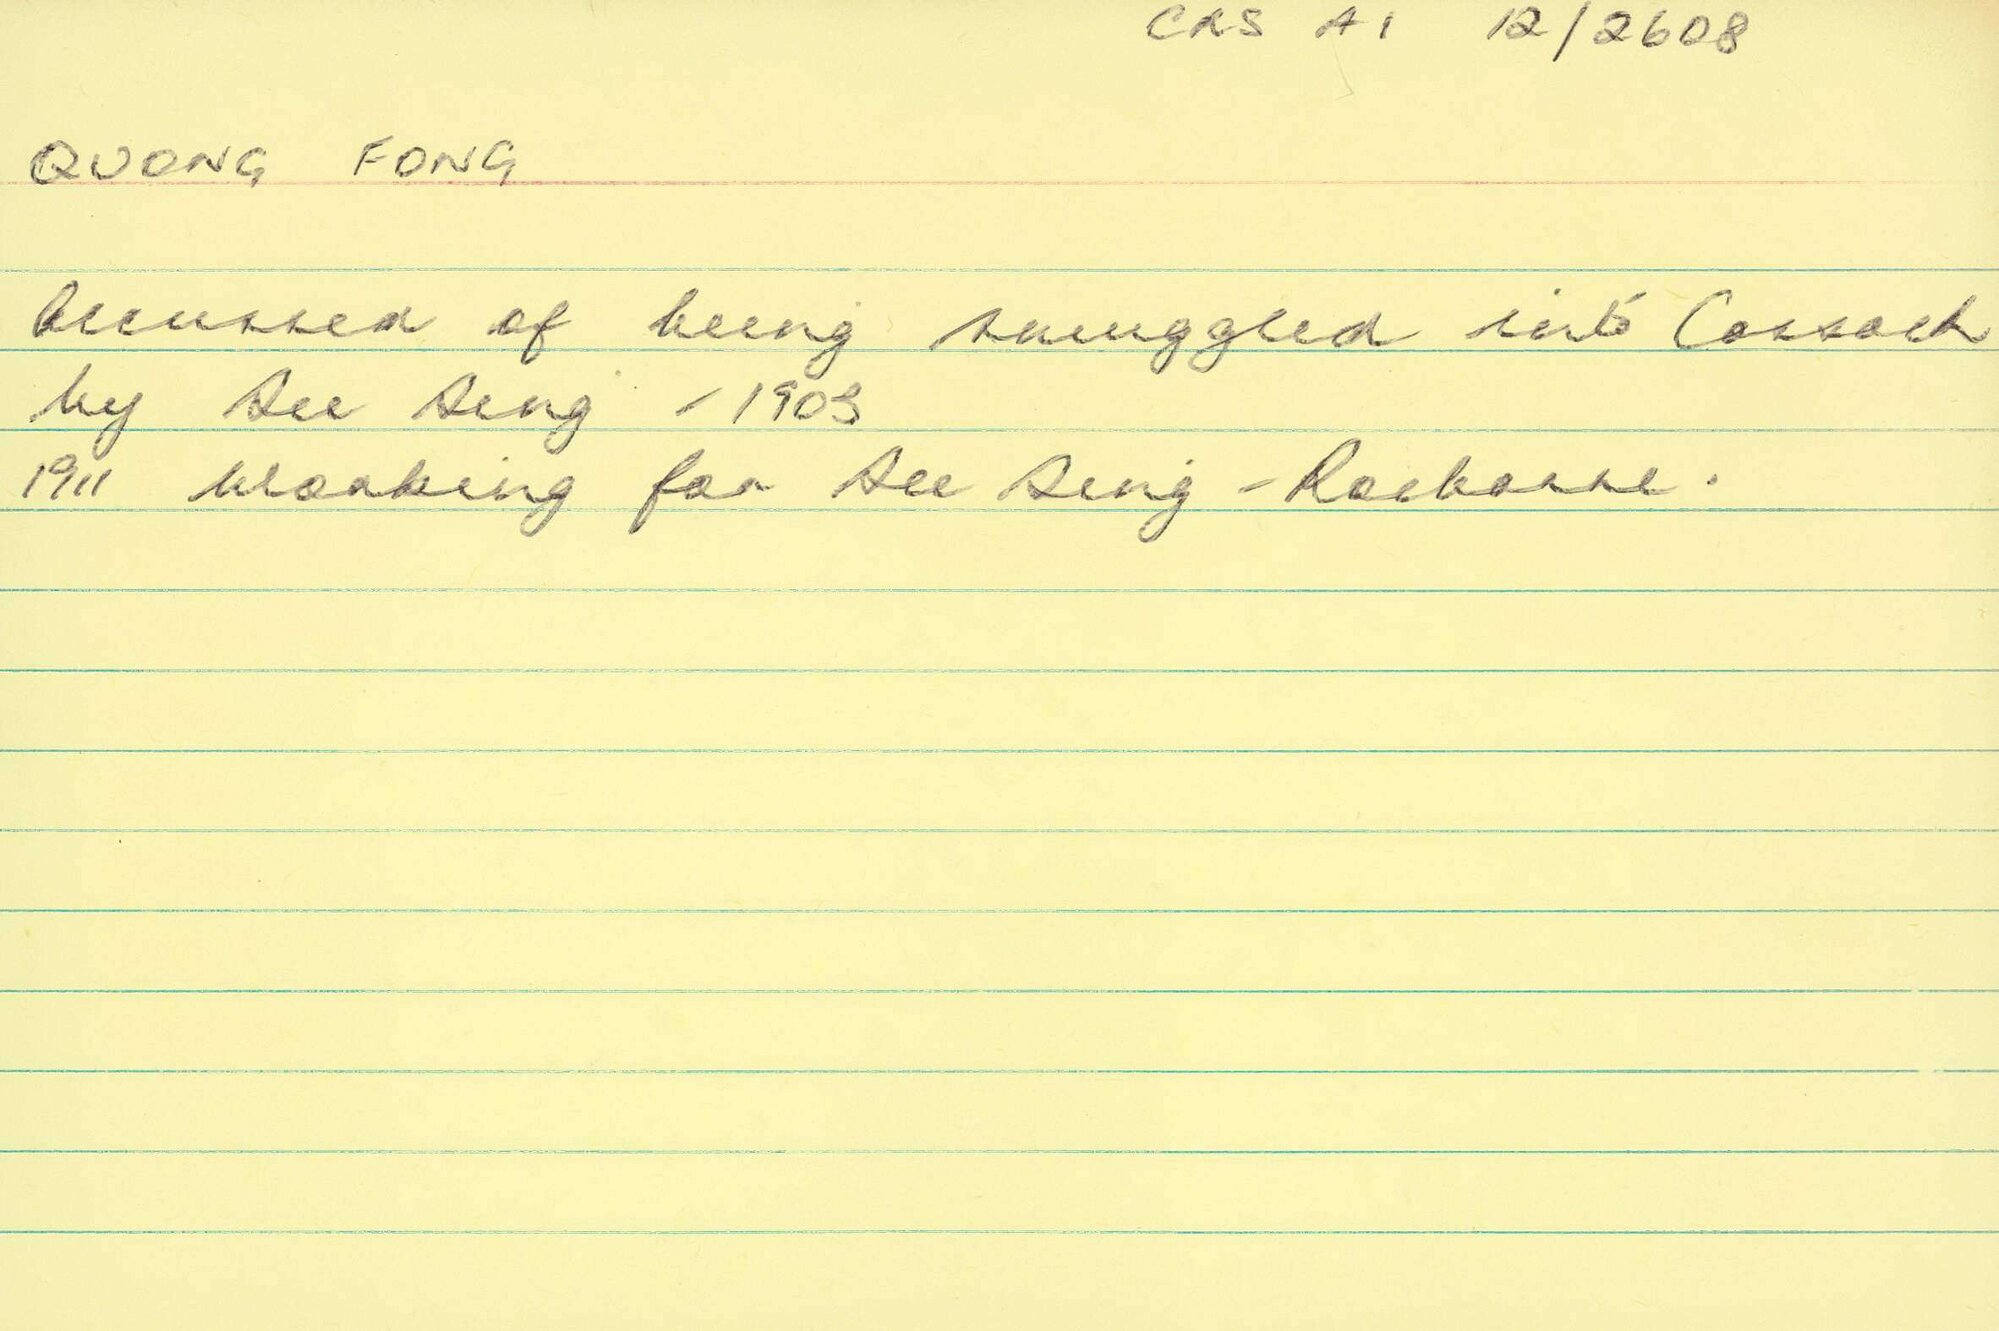 CRS A1 12/2608
QUONG FONG
Accussed of being smuggled into Cossack
by See Sing - 1903
1911 working for See Sing - Roebourne.